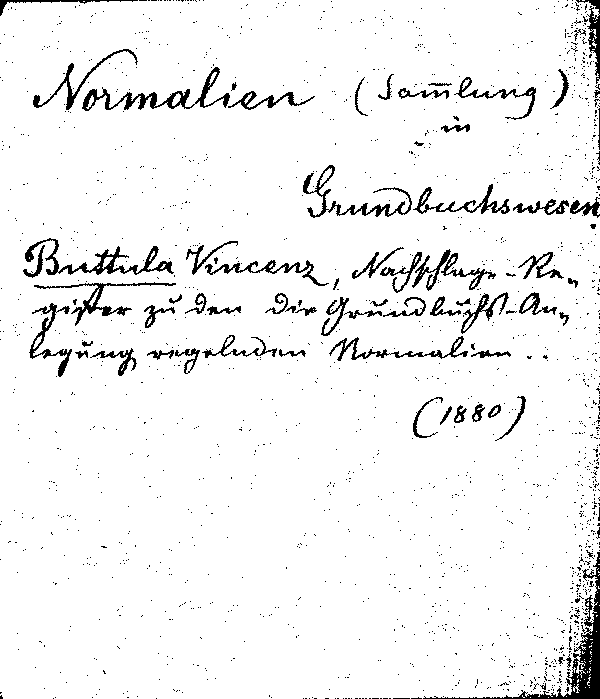 Normalien (Sam̅lung)
in
Grundbuchswesen.
Buttula Vincenz, Nachschlage-Re-
gister zu den die Grundbuchs-An-
legung regelnden Normalien ..
(1880)